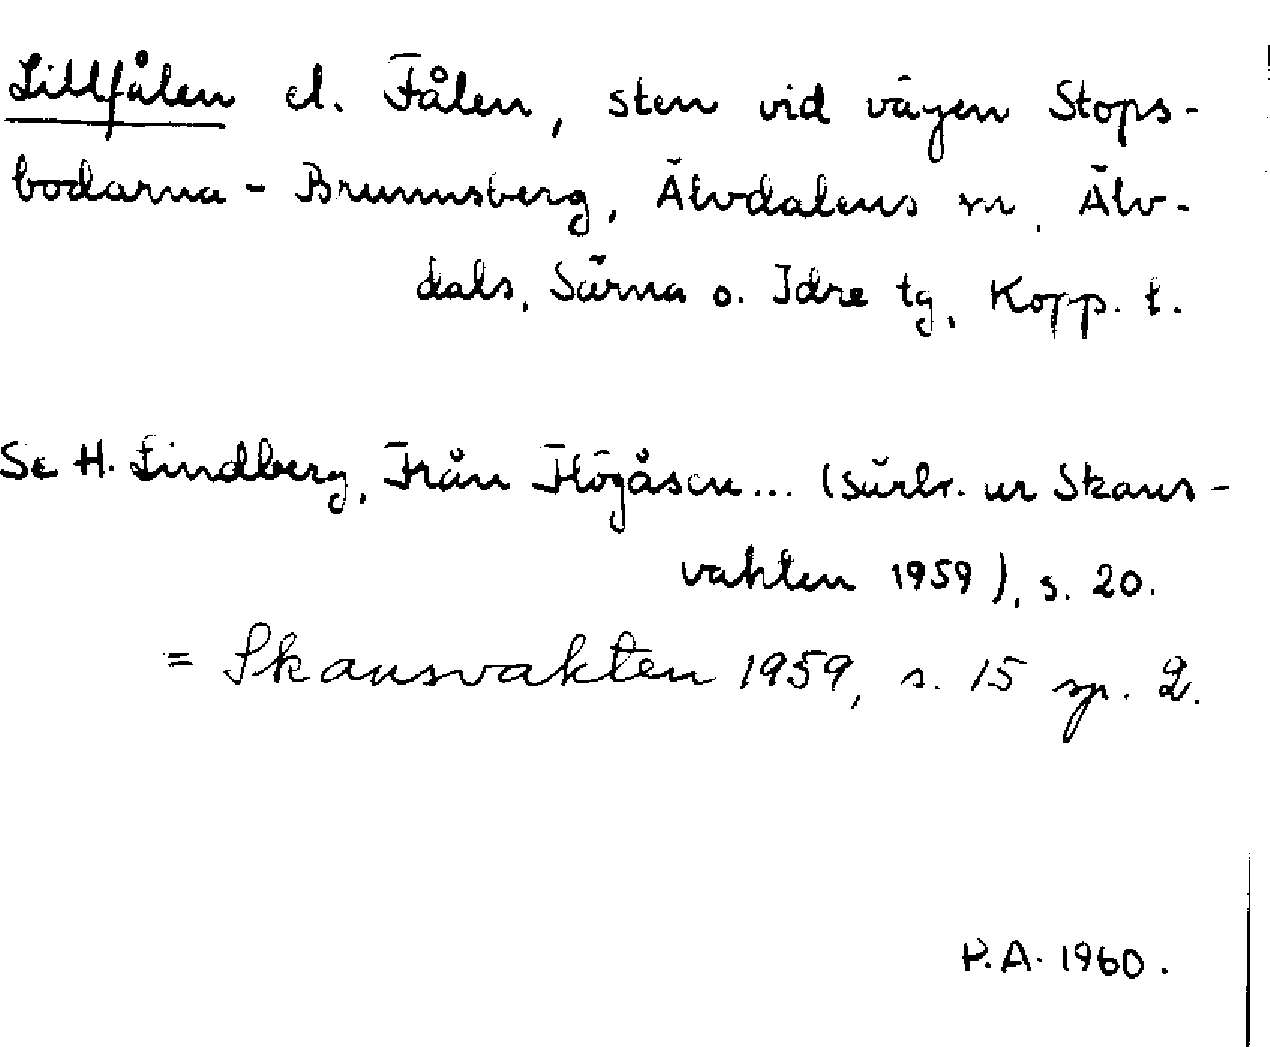 Lillfålen el. Fålen, sten vid vägen Stops-
bodarna - Brunnsberg, Älvdalens sn, Älv-
dals, Särna o. Idre tg, Kopp. l.
Se H. Lindberg, Från Flögåsen... (särtr. ur Skans-
vakten 1959), s. 20.
= Skansvakten 1959, s. 15 sp. 2.
P.A. 1960.